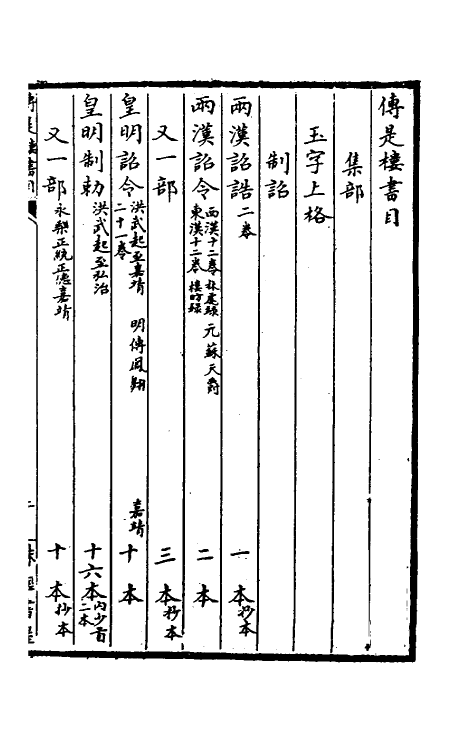 傳是樓書目
集部
玉字上格
制詔
兩漢詔誥二卷 一本抄本
兩漢詔令西漢十二卷林虙錄東漢十二卷樓昉錄 元蘇天爵 二本
又一部 三本抄本
皇明詔令洪武起至嘉靖二十一卷 明傅鳳翔 嘉靖 十本
皇明制勅洪武起至弘治 十六本內少首二本
又一部永樂正統正德嘉靖 十本抄本